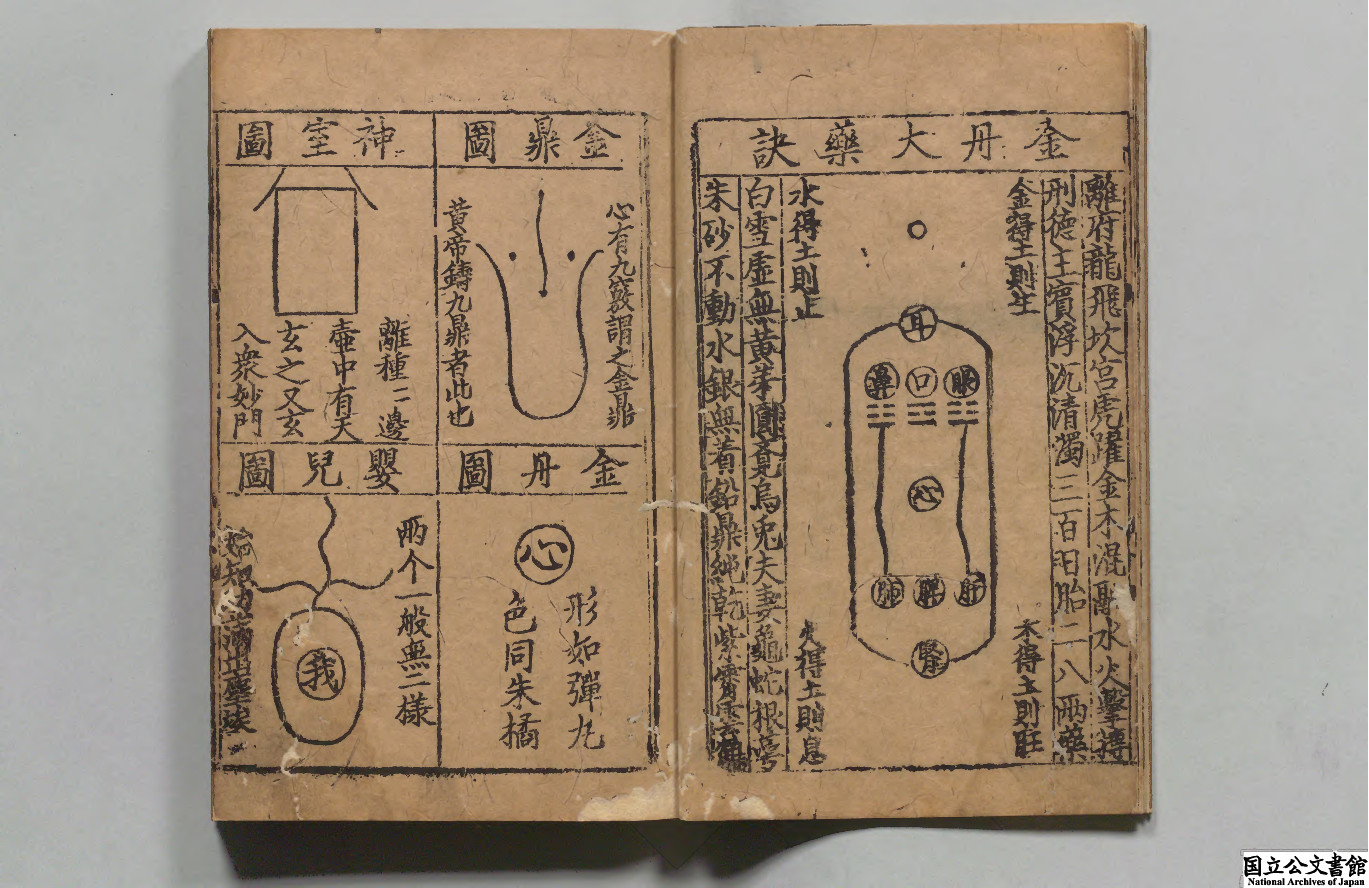 金丹大藥訣
離府龍飛坎宮虎躍金木混融水火擊搏
刑德主賓浮沉清濁三百日胎二八兩藥
金得土則生
木得土則旺
耳
眼
口
鼻
心
肝
脾
肺
腎
水得土則止
火得土則息
白雪虛無黃芽圓覔烏兎夫妻龜蛇根
朱砂不動水銀無着鉛鼎純乾紫
金鼎圖
心有九竅謂之金鼎
黃帝鑄九鼎者此也
神室圖
離種二邊
壺中有天
玄之又玄
入衆妙門
金丹圖
心
形如彈丸
色同朱橘
嬰兒圖
兩个一般無二樣
我
国立公文書館
National Archives of Japan